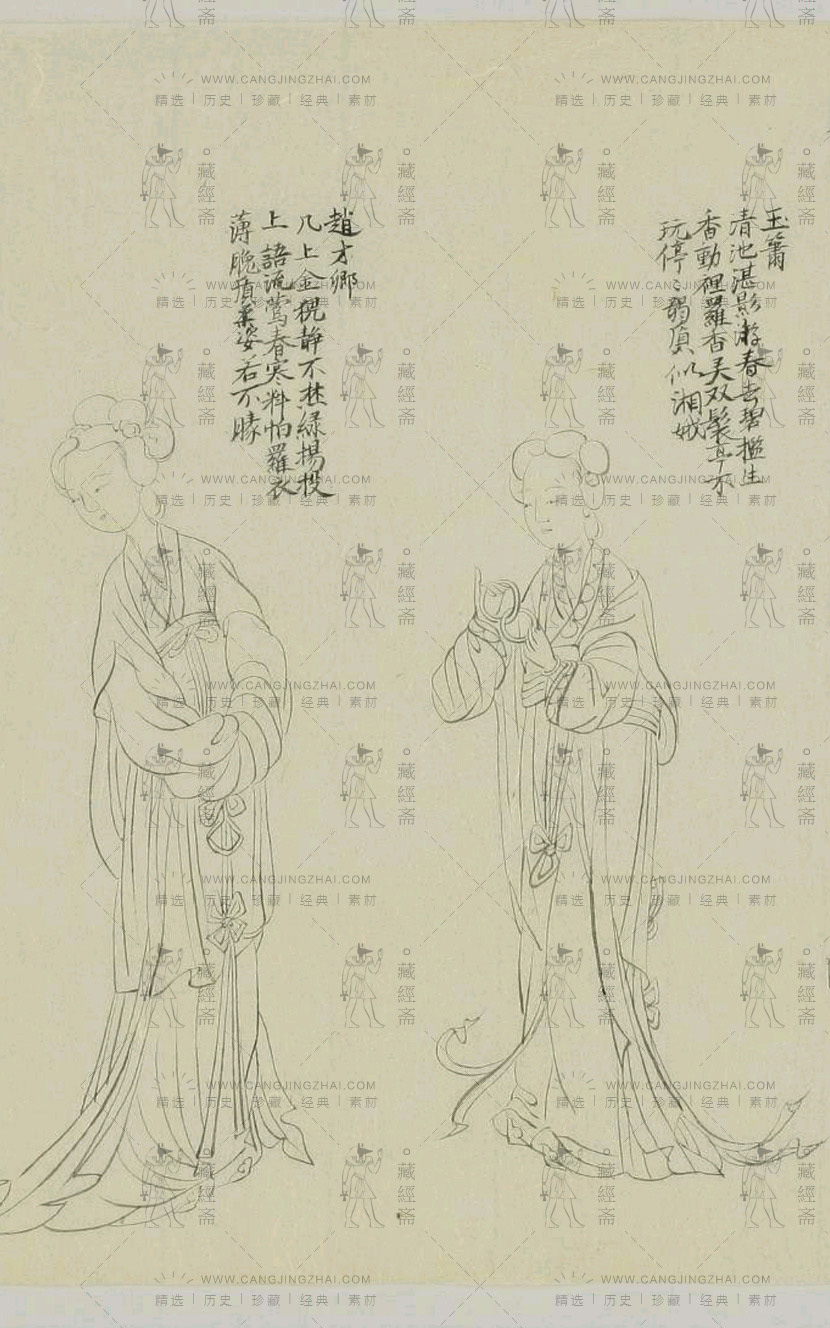 玉簫
清池湛影游春去碧檻生
香動羅杏双鬟不
玩停〻弱質似湘娥
趙才卿
几上金猊静不焚綠揚投
上語流鶯春寒料怕羅衣
薄脆質柔姿若不勝
藏經斋
WWW.CANGJINGZHAI.COM
精选 | 历史 | 珍藏 | 经典 | 素材